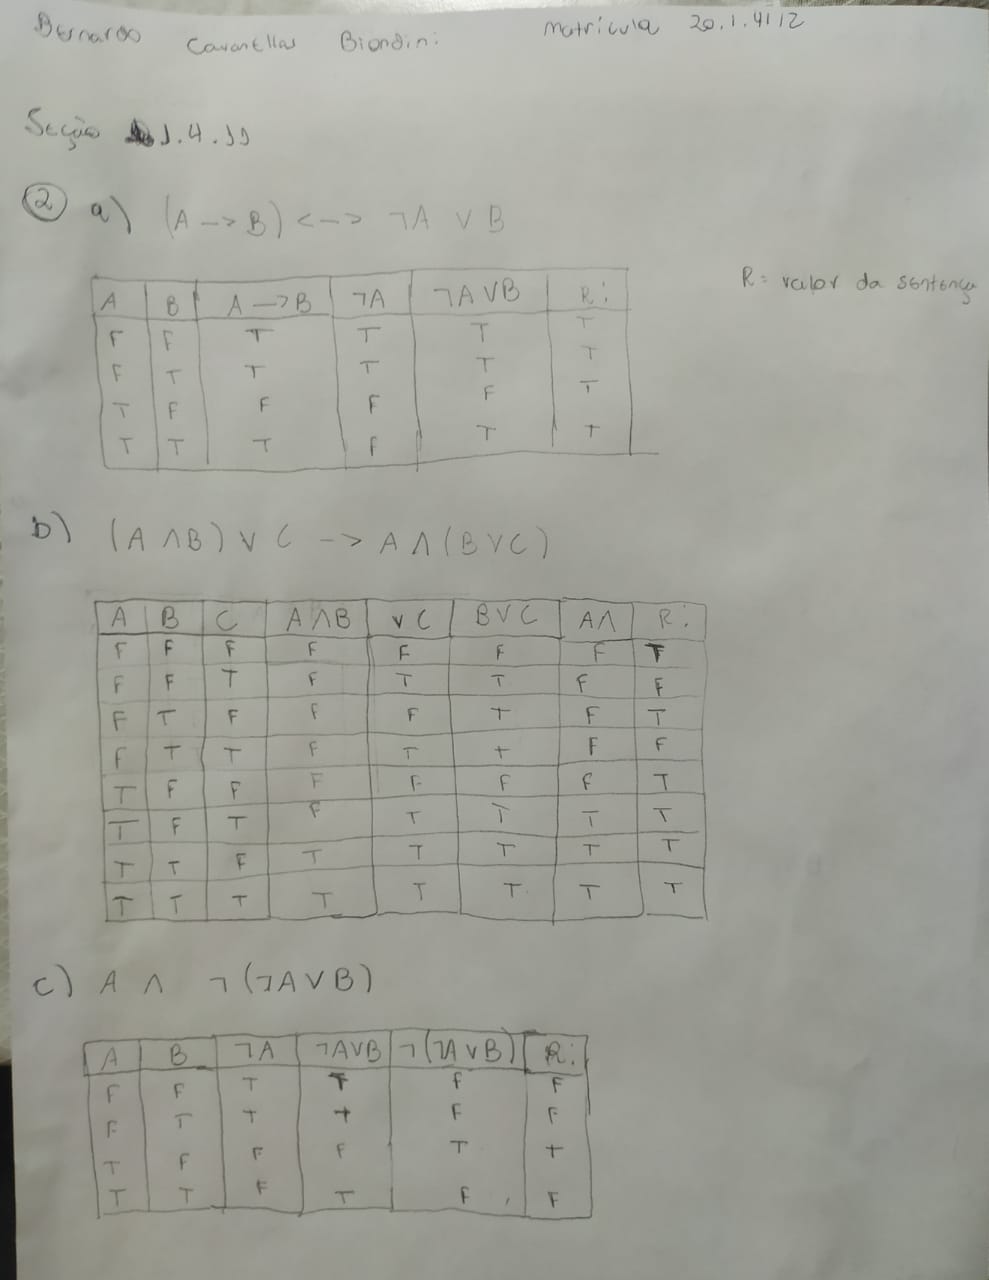 Bernardo Cavanellas Biondini matrícula 20.1.4112
Seção 1.4.11
2 a) (A -> B) <-> ¬A ∨ B
R = valor da sentença
A B A -> B ¬A ¬A ∨ B R:
F F T T T T
F T T T T T
T F F F F T
T T T F T T
b) (A ∧ B) ∨ C -> A ∧ (B ∨ C)
A B C A ∧ B ∨ C B ∨ C A ∧ R:
F F F F F F F T
F F T F T T F F
F T F F F T F T
F T T F T T F F
T F F F F F F T
T F T F T T T T
T T F T T T T T
T T T T T T T T
c) A ∧ ¬(¬A ∨ B)
A B ¬A ¬A∨B ¬(¬A ∨ B) R:
F F T T F F
F T T T F F
T F F F T T
T T F T F F